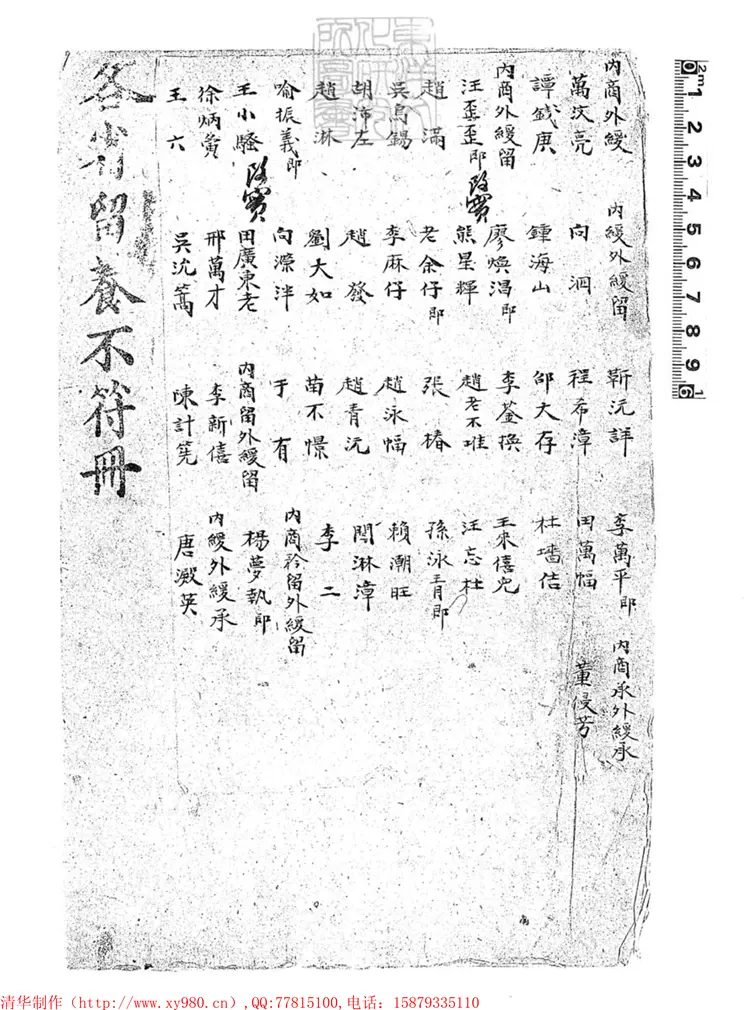 内商外緩 内緩外緩留 靳沅詳 李萬平郎 内商承外緩承
萬汶亮 向泗 程希漳 田萬幅 董侵芳
譚錢庚 鍾海山 邰大存 杜璠佶
内商外緩留 廖煥淐郎 李荃換 王來僖兇
汪歪歪郎 改實 熊呈輝 趙老不堆 汪忘杜
趙滿 老余仔郎 張椿 孫泳青郎
吳鳥錫 李麻仔 趙泳幅 賴潮旺
胡沛左 趙發 趙青沅 閻淋漳
趙淋 劉大如 苗不憬 李二
喻振義郎 向濚泮 于有 内商矜留外緩留
王小騷 改實 田廣東老 内商留外緩留 楊夢執郎
徐炳 邢萬才 李新僖 内緩外緩承
王六 吳沈篙 陳計 唐澱英
各省留養不符冊
0 1 2 3 4 5 6 7 8 9 10
2m
清华制作（http://www.xy980.cn）,QQ:77815100,电话：15879335110